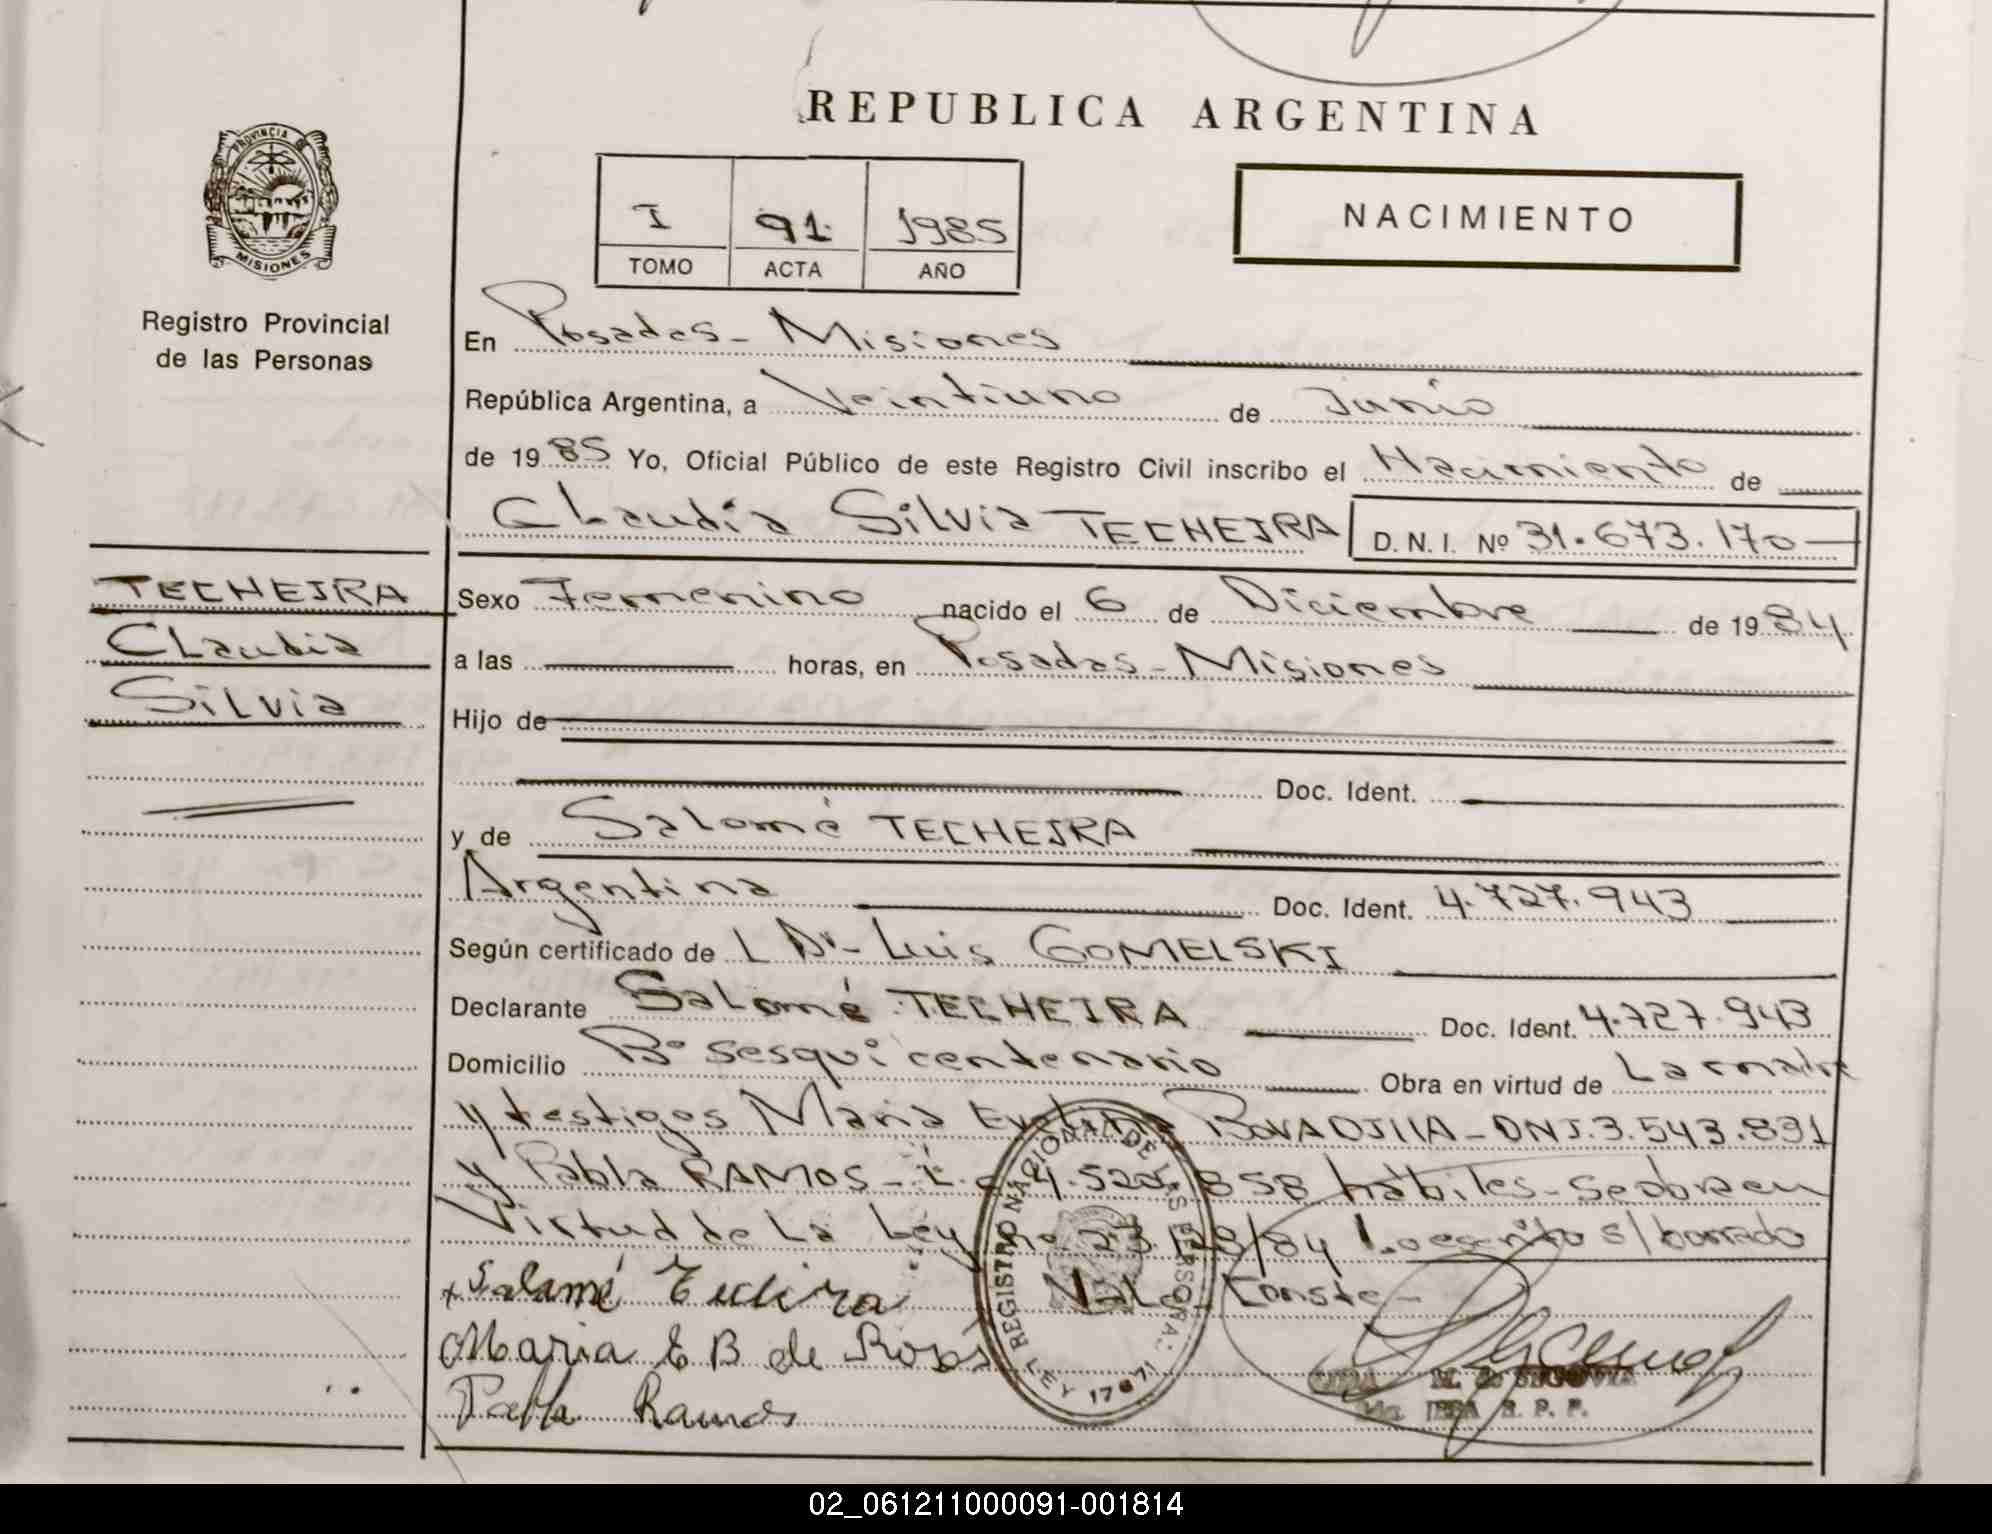 REPUBLICA ARGENTINA
PROVINCIA DE
MISIONES
Registro Provincial
de las Personas
I 91 1985
TOMO ACTA AÑO
NACIMIENTO
En Posadas - Misiones
República Argentina, a Veintiuno de Junio
de 1985 Yo, Oficial Público de este Registro Civil inscribo el Nacimiento de
Claudia Silvia TECHEIRA D.N.I. Nº 31.673.170
TECHEIRA
Claudia
Silvia
Sexo Femenino nacido el 6 de Diciembre de 1984
a las horas, en Posadas - Misiones
Hijo de
Doc. Ident.
y de Salomé TECHEIRA
Argentina Doc. Ident. 4.727.943
Según certificado de L Dr. Luis GOMELSKI
Declarante Salomé TECHEIRA Doc. Ident. 4.727.943
Domicilio Bº Sesquicentenario Obra en virtud de La madre
y testigos Maria Evelina BOVADILLA - DNI. 3.543.831
y Pabla RAMOS - L.C 4.520.858 hábiles - Se obra en
Virtud de La Ley nº 23.128/84 Lo escrito s/ borrado
Vale - Conste -
Salomé Techeira
Maria E B de Rojas
Pabla Ramos
REGISTRO NACIONAL DE LAS PERSONAS
LEY 17671
M. SEGOVIA
R. P. P.
02_061211000091-001814